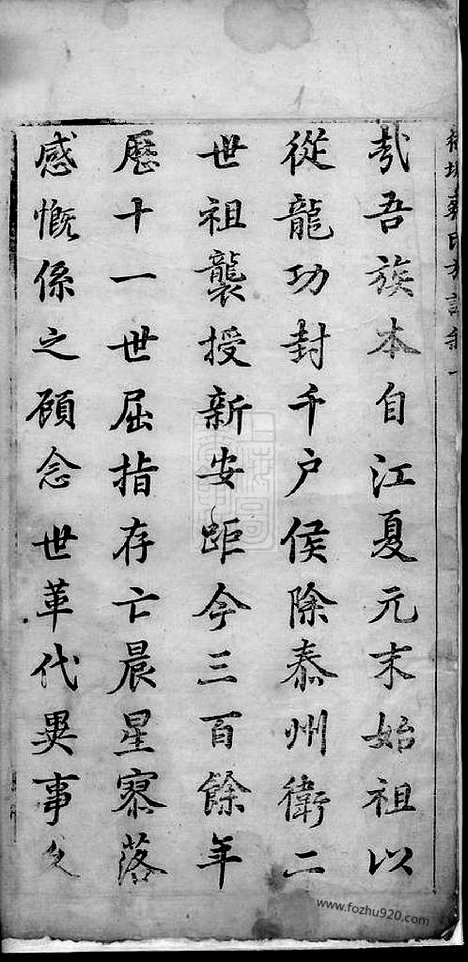 氏族譜
㢤吾族本自江夏元末始祖以
從龍功封千户侯除泰州衛二
世祖襲授新安距今三百餘年
歷十一世屈指存亡晨星寥落
感慨係之顧念世革代異事久
www.fozhu920.com